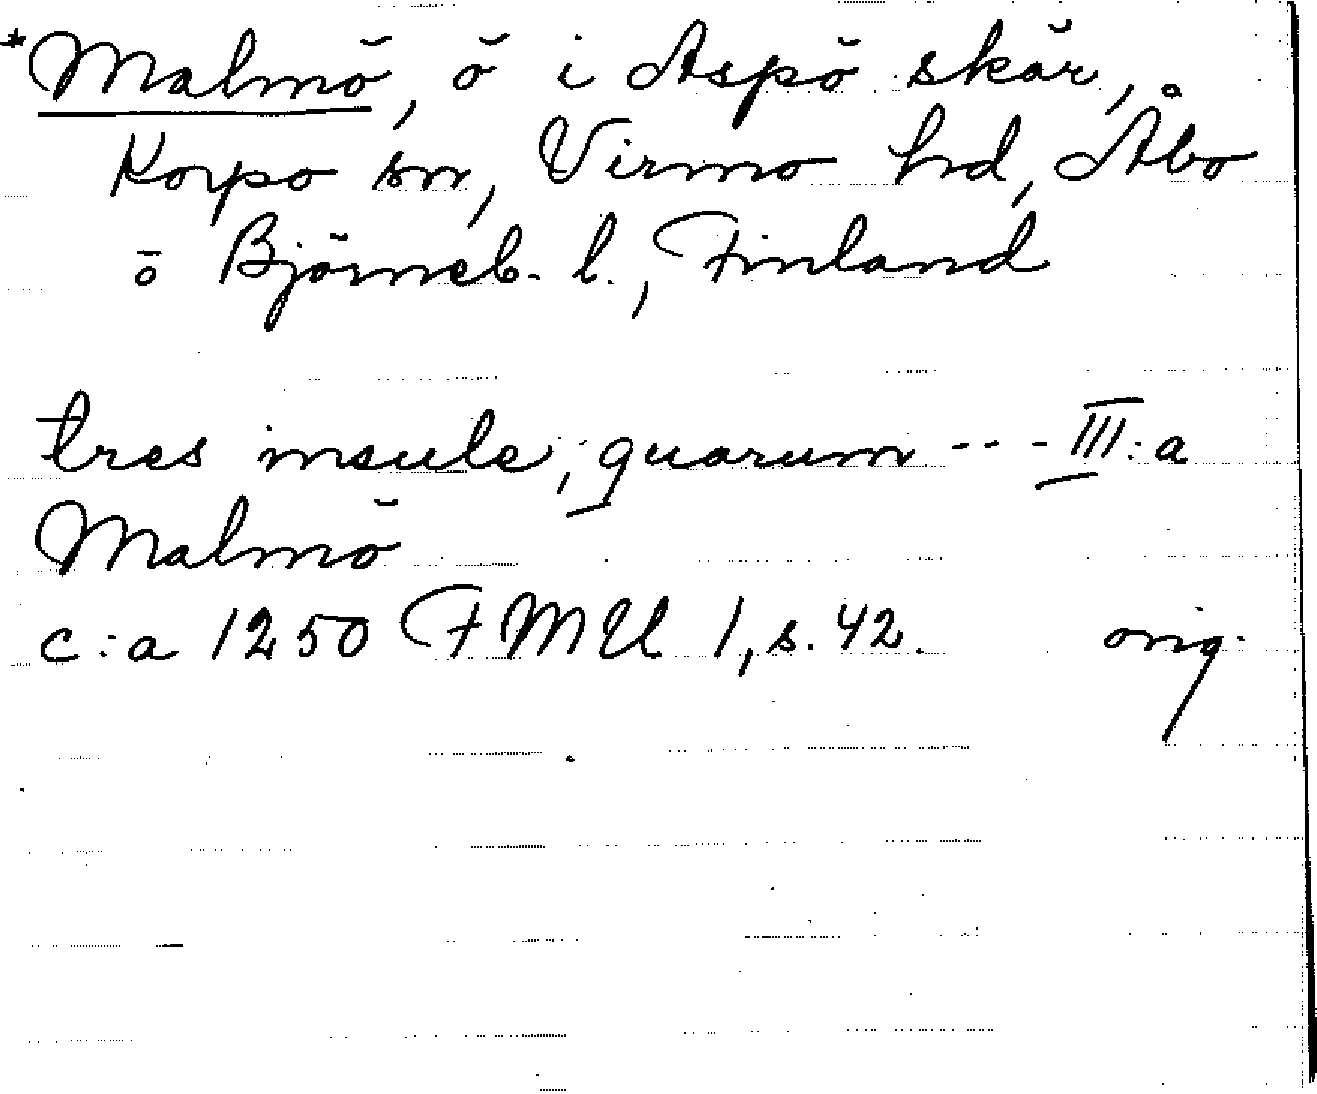 *Malmö, ö i Aspö skär,
Korpo sn, Virmo hd, Åbo
o Björneb. l., Finland
tres insule, quarum --- III:a
Malmö
c:a 1250 FMU 1, s. 42. orig.